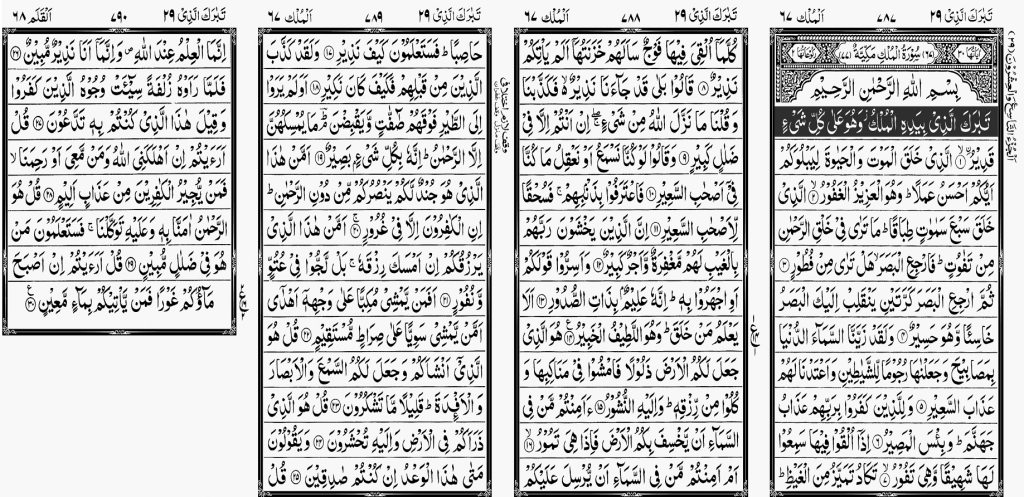 تَبٰرَكَ الَّذِیْ ٢٩ ٧٨٧ اَلْمُلْك ٦٧
اٰيَاتُهَا ٣٠ (٦٧) سُوْرَةُ الْمُلْكِ مَكِّيَّةٌ (٧٧) رُكُوْعَاتُهَا ٢
بِسْمِ اللّٰهِ الرَّحْمٰنِ الرَّحِيْمِ
تَبٰرَكَ الَّذِیْ بِيَدِهِ الْمُلْكُ ز وَهُوَ عَلٰی كُلِّ شَیْءٍ
قَدِيْرُ ۙ﴿۱﴾ الَّذِیْ خَلَقَ الْمَوْتَ وَالْحَيٰوةَ لِيَبْلُوَكُمْ
اَيُّكُمْ اَحْسَنُ عَمَلًا ؕ وَهُوَ الْعَزِيْزُ الْغَفُوْرُ ۙ﴿۲﴾ الَّذِیْ
خَلَقَ سَبْعَ سَمٰوٰتٍ طِبَاقًا ؕ مَا تَرٰی فِیْ خَلْقِ الرَّحْمٰنِ
مِنْ تَفٰوُتٍ ؕ فَارْجِعِ الْبَصَرَ ۙ هَلْ تَرٰی مِنْ فُطُوْرٍ ﴿۳﴾
ثُمَّ ارْجِعِ الْبَصَرَ كَرَّتَيْنِ يَنْقَلِبْ اِلَيْكَ الْبَصَرُ
خَاسِئًا وَّهُوَ حَسِيْرٌ ﴿۴﴾ وَلَقَدْ زَيَّنَّا السَّمَآءَ الدُّنْيَا
بِمَصَابِيْحَ وَجَعَلْنٰهَا رُجُوْمًا لِّلشَّيٰطِيْنِ وَاَعْتَدْنَا لَهُمْ
عَذَابَ السَّعِيْرِ ﴿۵﴾ وَلِلَّذِيْنَ كَفَرُوْا بِرَبِّهِمْ عَذَابُ
جَهَنَّمَ ؕ وَبِئْسَ الْمَصِيْرُ ﴿۶﴾ اِذَاۤ اُلْقُوْا فِيْهَا سَمِعُوْا
لَهَا شَهِيْقًا وَّهِیَ تَفُوْرُ ۙ﴿۷﴾ تَكَادُ تَمَيَّزُ مِنَ الْغَيْظِ ؕ
تَبٰرَكَ الَّذِیْ ٢٩ ٧٨٨ اَلْمُلْك ٦٧
كُلَّمَاۤ اُلْقِیَ فِيْهَا فَوْجٌ سَاَلَهُمْ خَزَنَتُهَاۤ اَلَمْ يَاْتِكُمْ
نَذِيْرٌ ﴿۸﴾ قَالُوْا بَلٰی قَدْ جَآءَنَا نَذِيْرٌ ۙ۬ فَكَذَّبْنَا
وَقُلْنَا مَا نَزَّلَ اللّٰهُ مِنْ شَیْءٍ ۚۖ اِنْ اَنْتُمْ اِلَّا فِیْ
ضَلٰلٍ كَبِيْرٍ ﴿۹﴾ وَقَالُوْا لَوْ كُنَّا نَسْمَعُ اَوْ نَعْقِلُ مَا كُنَّا
فِیْۤ اَصْحٰبِ السَّعِيْرِ ﴿۱۰﴾ فَاعْتَرَفُوْا بِذَنْۢبِهِمْ ۚ فَسُحْقًا
لِّاَصْحٰبِ السَّعِيْرِ ﴿۱۱﴾ اِنَّ الَّذِيْنَ يَخْشَوْنَ رَبَّهُمْ
بِالْغَيْبِ لَهُمْ مَّغْفِرَةٌ وَّاَجْرٌ كَبِيْرٌ ﴿۱۲﴾ وَاَسِرُّوْا قَوْلَكُمْ
اَوِ اجْهَرُوْا بِهٖ ؕ اِنَّهٗ عَلِيْمٌۢ بِذَاتِ الصُّدُوْرِ ﴿۱۳﴾ اَلَا
يَعْلَمُ مَنْ خَلَقَ ؕ وَهُوَ اللَّطِيْفُ الْخَبِيْرُ ﴿۱۴﴾ هُوَ الَّذِیْ
جَعَلَ لَكُمُ الْاَرْضَ ذَلُوْلًا فَامْشُوْا فِیْ مَنَاكِبِهَا وَ
كُلُوْا مِنْ رِّزْقِهٖ ؕ وَاِلَيْهِ النُّشُوْرُ ﴿۱۵﴾ ءَاَمِنْتُمْ مَّنْ فِی
السَّمَآءِ اَنْ يَّخْسِفَ بِكُمُ الْاَرْضَ فَاِذَا هِیَ تَمُوْرُ ﴿۱۶﴾
اَمْ اَمِنْتُمْ مَّنْ فِی السَّمَآءِ اَنْ يُّرْسِلَ عَلَيْكُمْ
تَبٰرَكَ الَّذِیْ ٢٩ ٧٨٩ اَلْمُلْك ٦٧
حَاصِبًا ؕ فَسَتَعْلَمُوْنَ كَيْفَ نَذِيْرِ ﴿۱۷﴾ وَلَقَدْ كَذَّبَ
الَّذِيْنَ مِنْ قَبْلِهِمْ فَكَيْفَ كَانَ نَكِيْرِ ﴿۱۸﴾ اَوَلَمْ يَرَوْا
اِلَی الطَّيْرِ فَوْقَهُمْ صٰٓفّٰتٍ وَّيَقْبِضْنَ ؔۘ مَا يُمْسِكُهُنَّ
اِلَّا الرَّحْمٰنُ ؕ اِنَّهٗ بِكُلِّ شَیْءٍۭ بَصِيْرٌ ﴿۱۹﴾ اَمَّنْ هٰذَا
الَّذِیْ هُوَ جُنْدٌ لَّكُمْ يَنْصُرُكُمْ مِّنْ دُوْنِ الرَّحْمٰنِ ؕ
اِنِ الْكٰفِرُوْنَ اِلَّا فِیْ غُرُوْرٍ ﴿۲۰﴾ اَمَّنْ هٰذَا الَّذِیْ
يَرْزُقُكُمْ اِنْ اَمْسَكَ رِزْقَهٗ ۚ بَلْ لَّجُّوْا فِیْ عُتُوٍّ
وَّنُفُوْرٍ ﴿۲۱﴾ اَفَمَنْ يَّمْشِیْ مُكِبًّا عَلٰی وَجْهِهٖۤ اَهْدٰۤی
اَمَّنْ يَّمْشِیْ سَوِيًّا عَلٰی صِرَاطٍ مُّسْتَقِيْمٍ ﴿۲۲﴾ قُلْ هُوَ
الَّذِیْۤ اَنْشَاَكُمْ وَجَعَلَ لَكُمُ السَّمْعَ وَالْاَبْصَارَ
وَالْاَفْـِٕدَةَ ؕ قَلِيْلًا مَّا تَشْكُرُوْنَ ﴿۲۳﴾ قُلْ هُوَ الَّذِیْ
ذَرَاَكُمْ فِی الْاَرْضِ وَاِلَيْهِ تُحْشَرُوْنَ ﴿۲۴﴾ وَيَقُوْلُوْنَ
مَتٰی هٰذَا الْوَعْدُ اِنْ كُنْتُمْ صٰدِقِيْنَ ﴿۲۵﴾ قُلْ
تَبٰرَكَ الَّذِیْ ٢٩ ٧٩٠ اَلْقَلَم ٦٨
اِنَّمَا الْعِلْمُ عِنْدَ اللّٰهِ ۪ وَاِنَّمَاۤ اَنَا نَذِيْرٌ مُّبِيْنٌ ﴿۲۶﴾
فَلَمَّا رَاَوْهُ زُلْفَةً سِيْٓـَٔتْ وُجُوْهُ الَّذِيْنَ كَفَرُوْا
وَقِيْلَ هٰذَا الَّذِیْ كُنْتُمْ بِهٖ تَدَّعُوْنَ ﴿۲۷﴾ قُلْ
اَرَءَيْتُمْ اِنْ اَهْلَكَنِیَ اللّٰهُ وَمَنْ مَّعِیَ اَوْ رَحِمَنَا ۙ
فَمَنْ يُّجِيْرُ الْكٰفِرِيْنَ مِنْ عَذَابٍ اَلِيْمٍ ﴿۲۸﴾ قُلْ هُوَ
الرَّحْمٰنُ اٰمَنَّا بِهٖ وَعَلَيْهِ تَوَكَّلْنَا ۚ فَسَتَعْلَمُوْنَ مَنْ
هُوَ فِیْ ضَلٰلٍ مُّبِيْنٍ ﴿۲۹﴾ قُلْ اَرَءَيْتُمْ اِنْ اَصْبَحَ
مَآؤُكُمْ غَوْرًا فَمَنْ يَّاْتِيْكُمْ بِمَآءٍ مَّعِيْنٍ ﴿۳۰﴾